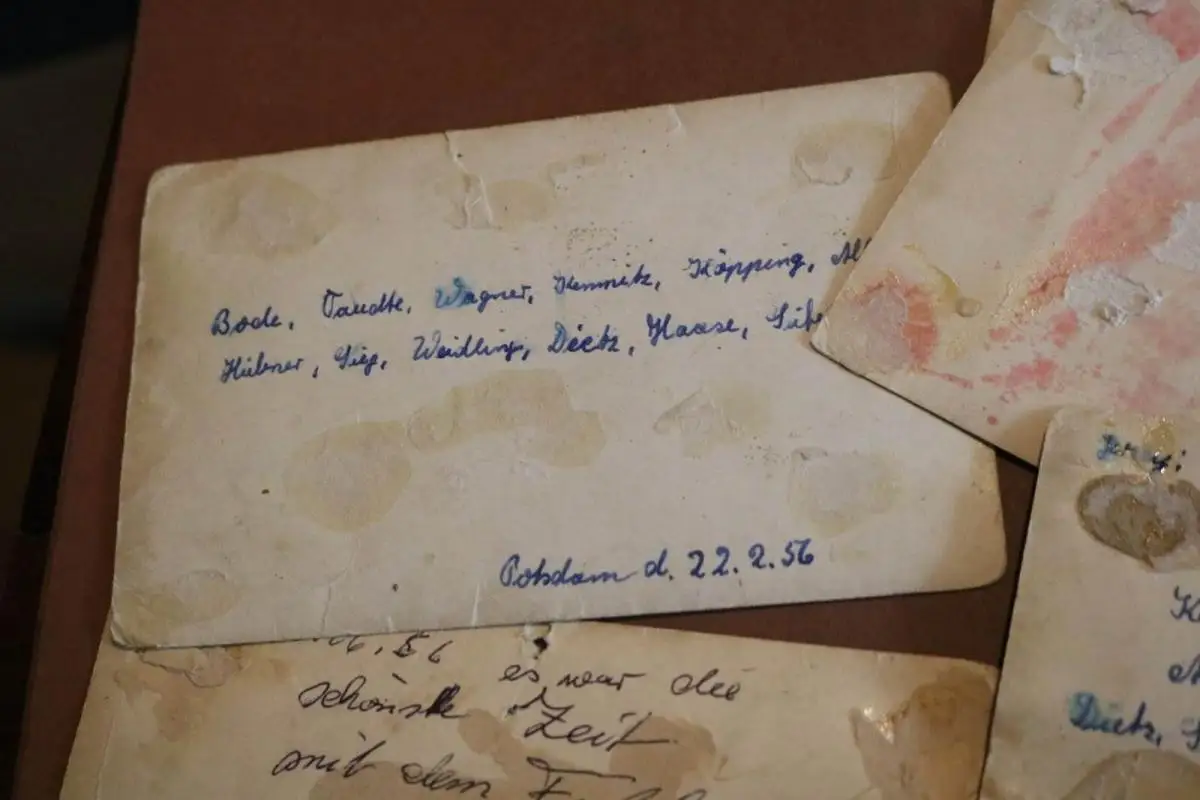 Bode, Taudte, Wagner, Kemnitz, Köpping,
Hübner, Sieg, Weidling, Dietz, Haase,
Potsdam d. 22.2.56
56 es war die
schönste Zeit
mit dem
Dietz,